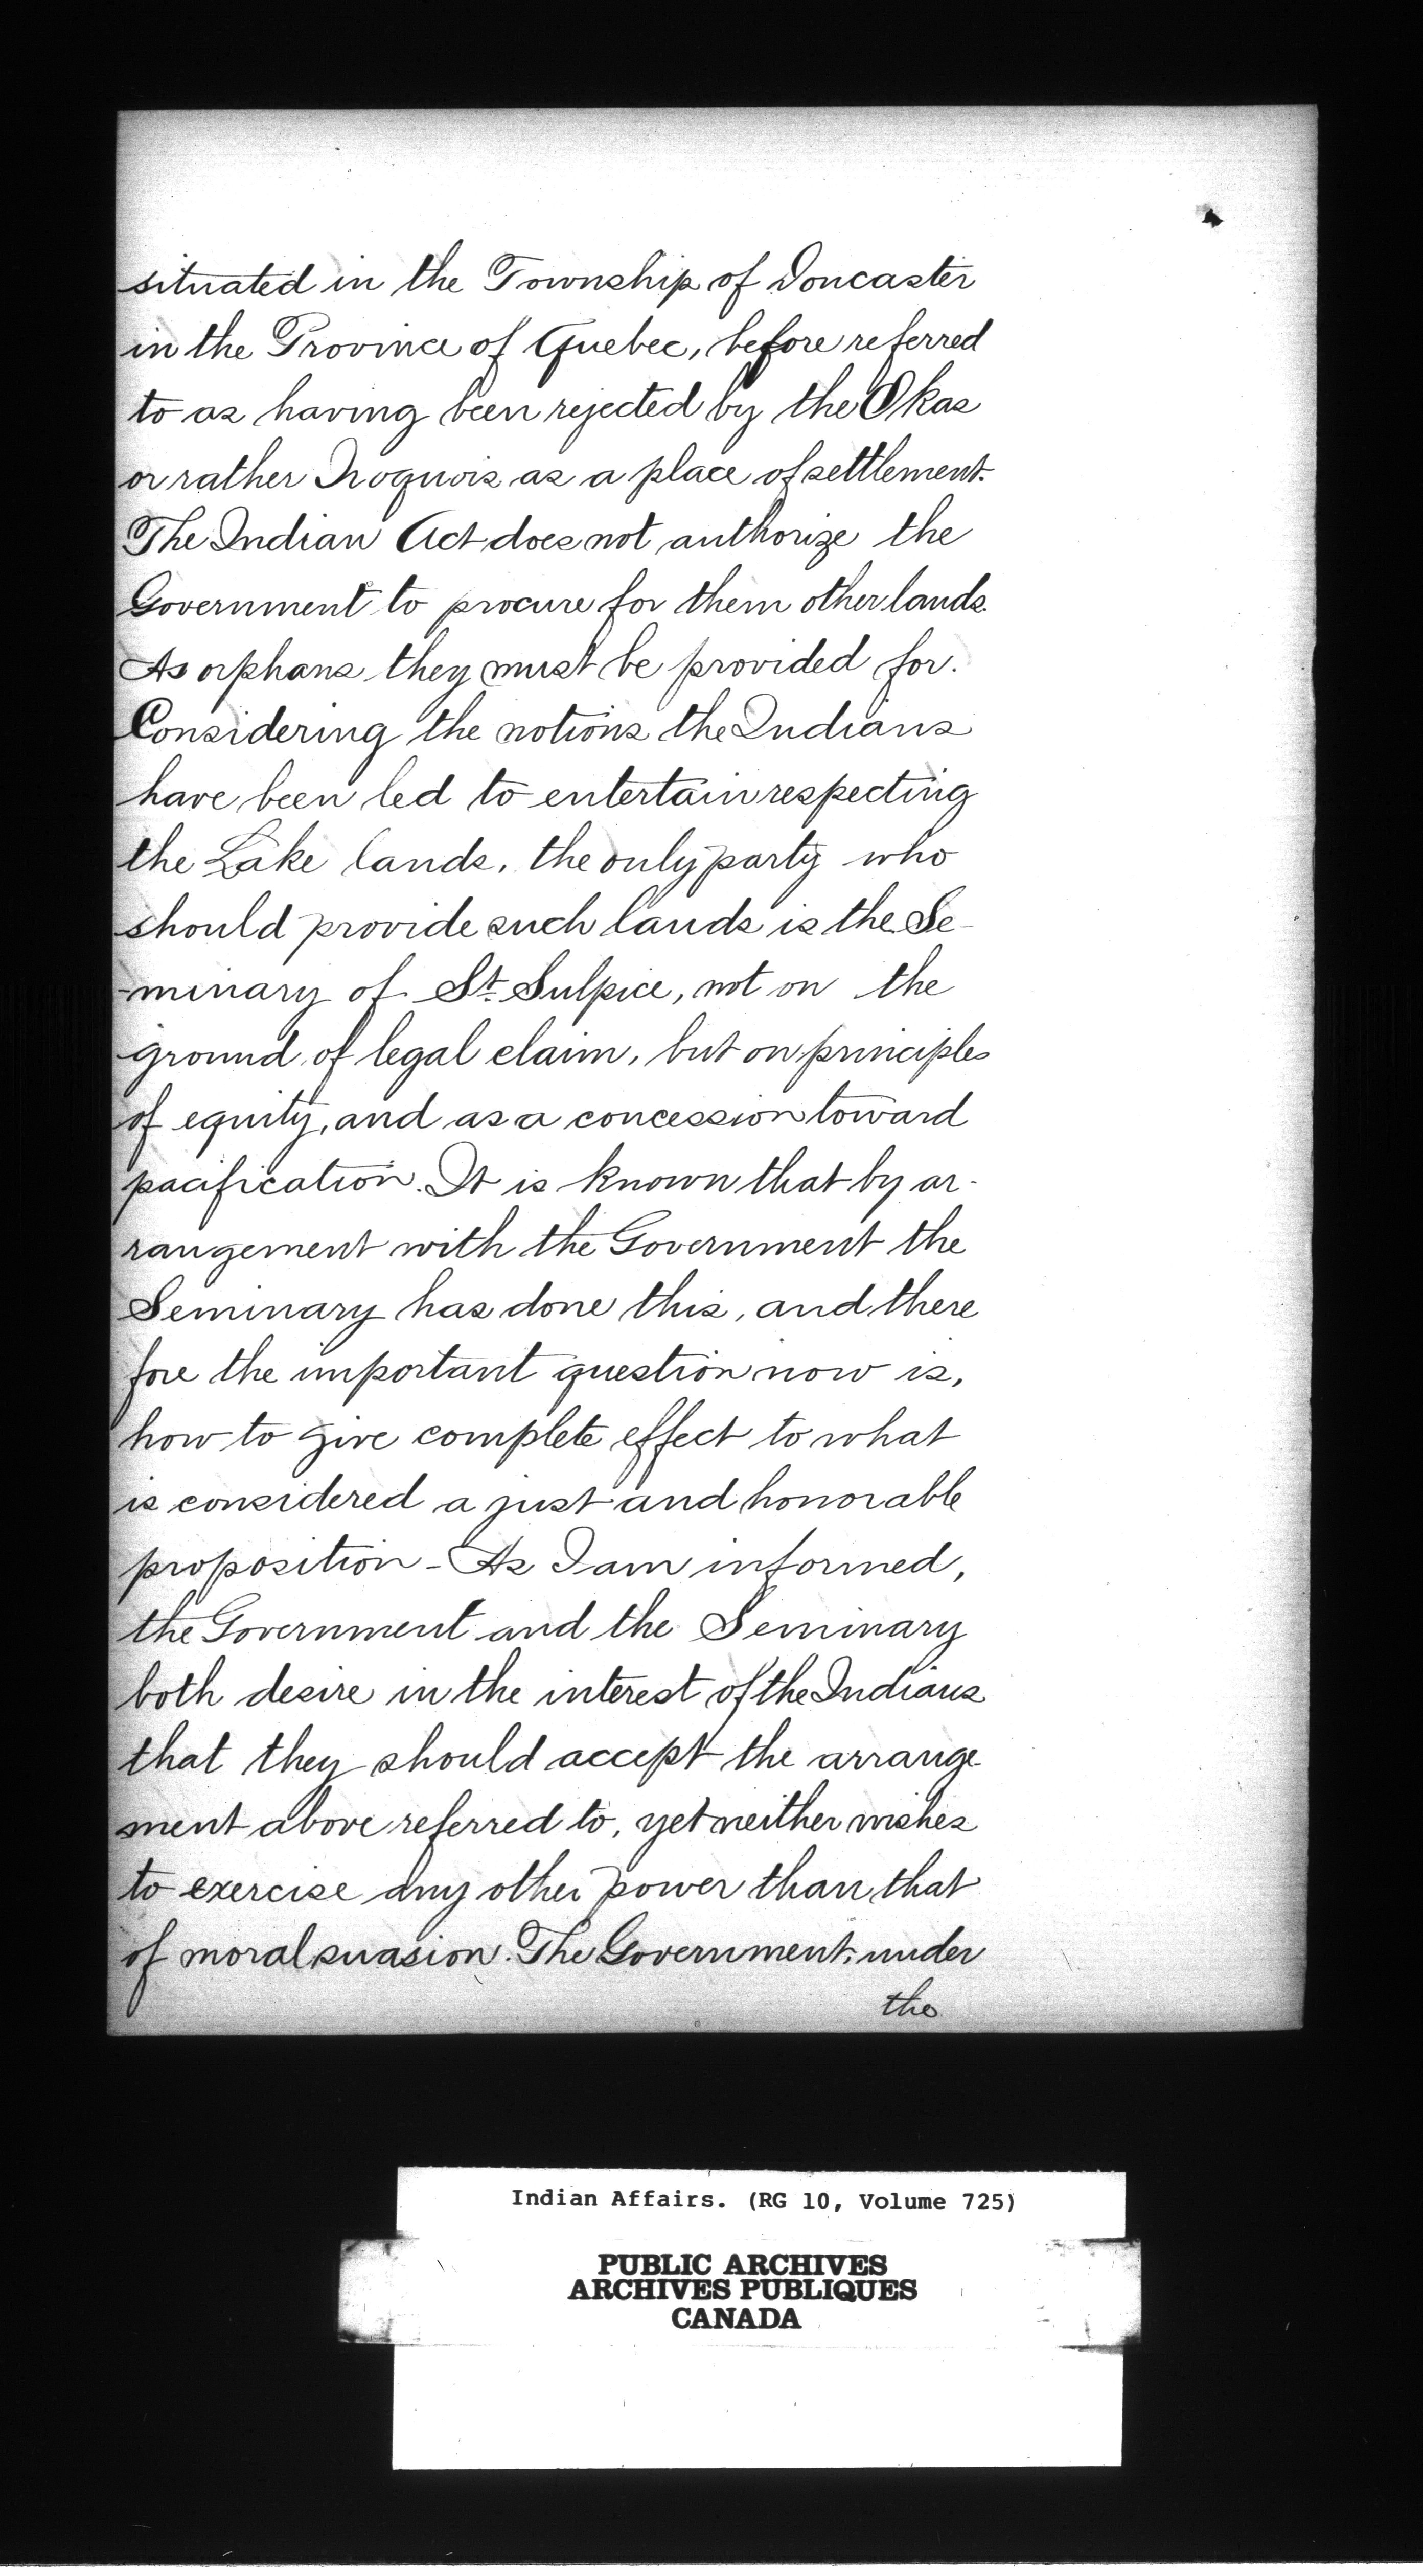 situated in the Township of Doncaster
in the Province of Quebec, before referred
to as having been rejected by the Okas
or rather Iroquois as a place of settlement.
The Indian Act does not authorize the
Government to procure for them other lands.
As orphans they must be provided for.
Considering the notions the Indians
have been led to entertain respecting
the Lake lands, the only party who
should provide such lands is the Se-
-minary of St. Sulpice, not on the
ground of legal claim, but on principles
of equity, and as a concession toward
pacification. It is known that by ar-
rangement with the Government the
Seminary has done this, and there
fore the important question now is,
how to give complete effect to what
is considered a just and honorable
proposition - As I am informed,
the Government and the Seminary
both desire in the interest of the Indians
that they should accept the arrange-
ment above referred to, yet neither wishes
to exercise any other power than that
of moral suasion. The Government, under
the
Indian Affairs. (RG 10, Volume 725)
PUBLIC ARCHIVES
ARCHIVES PUBLIQUES
CANADA